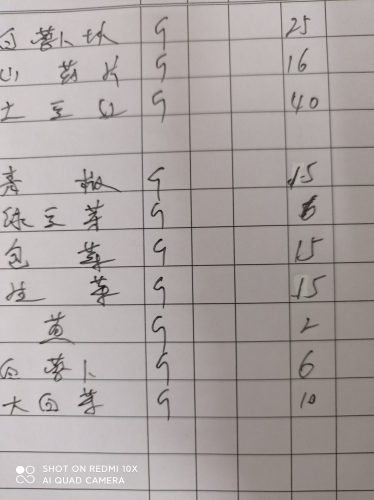 白萝卜块 G 25
山药片 G 16
土豆丝 G 40
青椒 G 15
绿豆芽 G 6
包菜 G 15
生菜 G 15
黄 G 2
白萝卜 G 6
大白芽 G 10
SHOT ON REDMI 10X
AI QUAD CAMERA